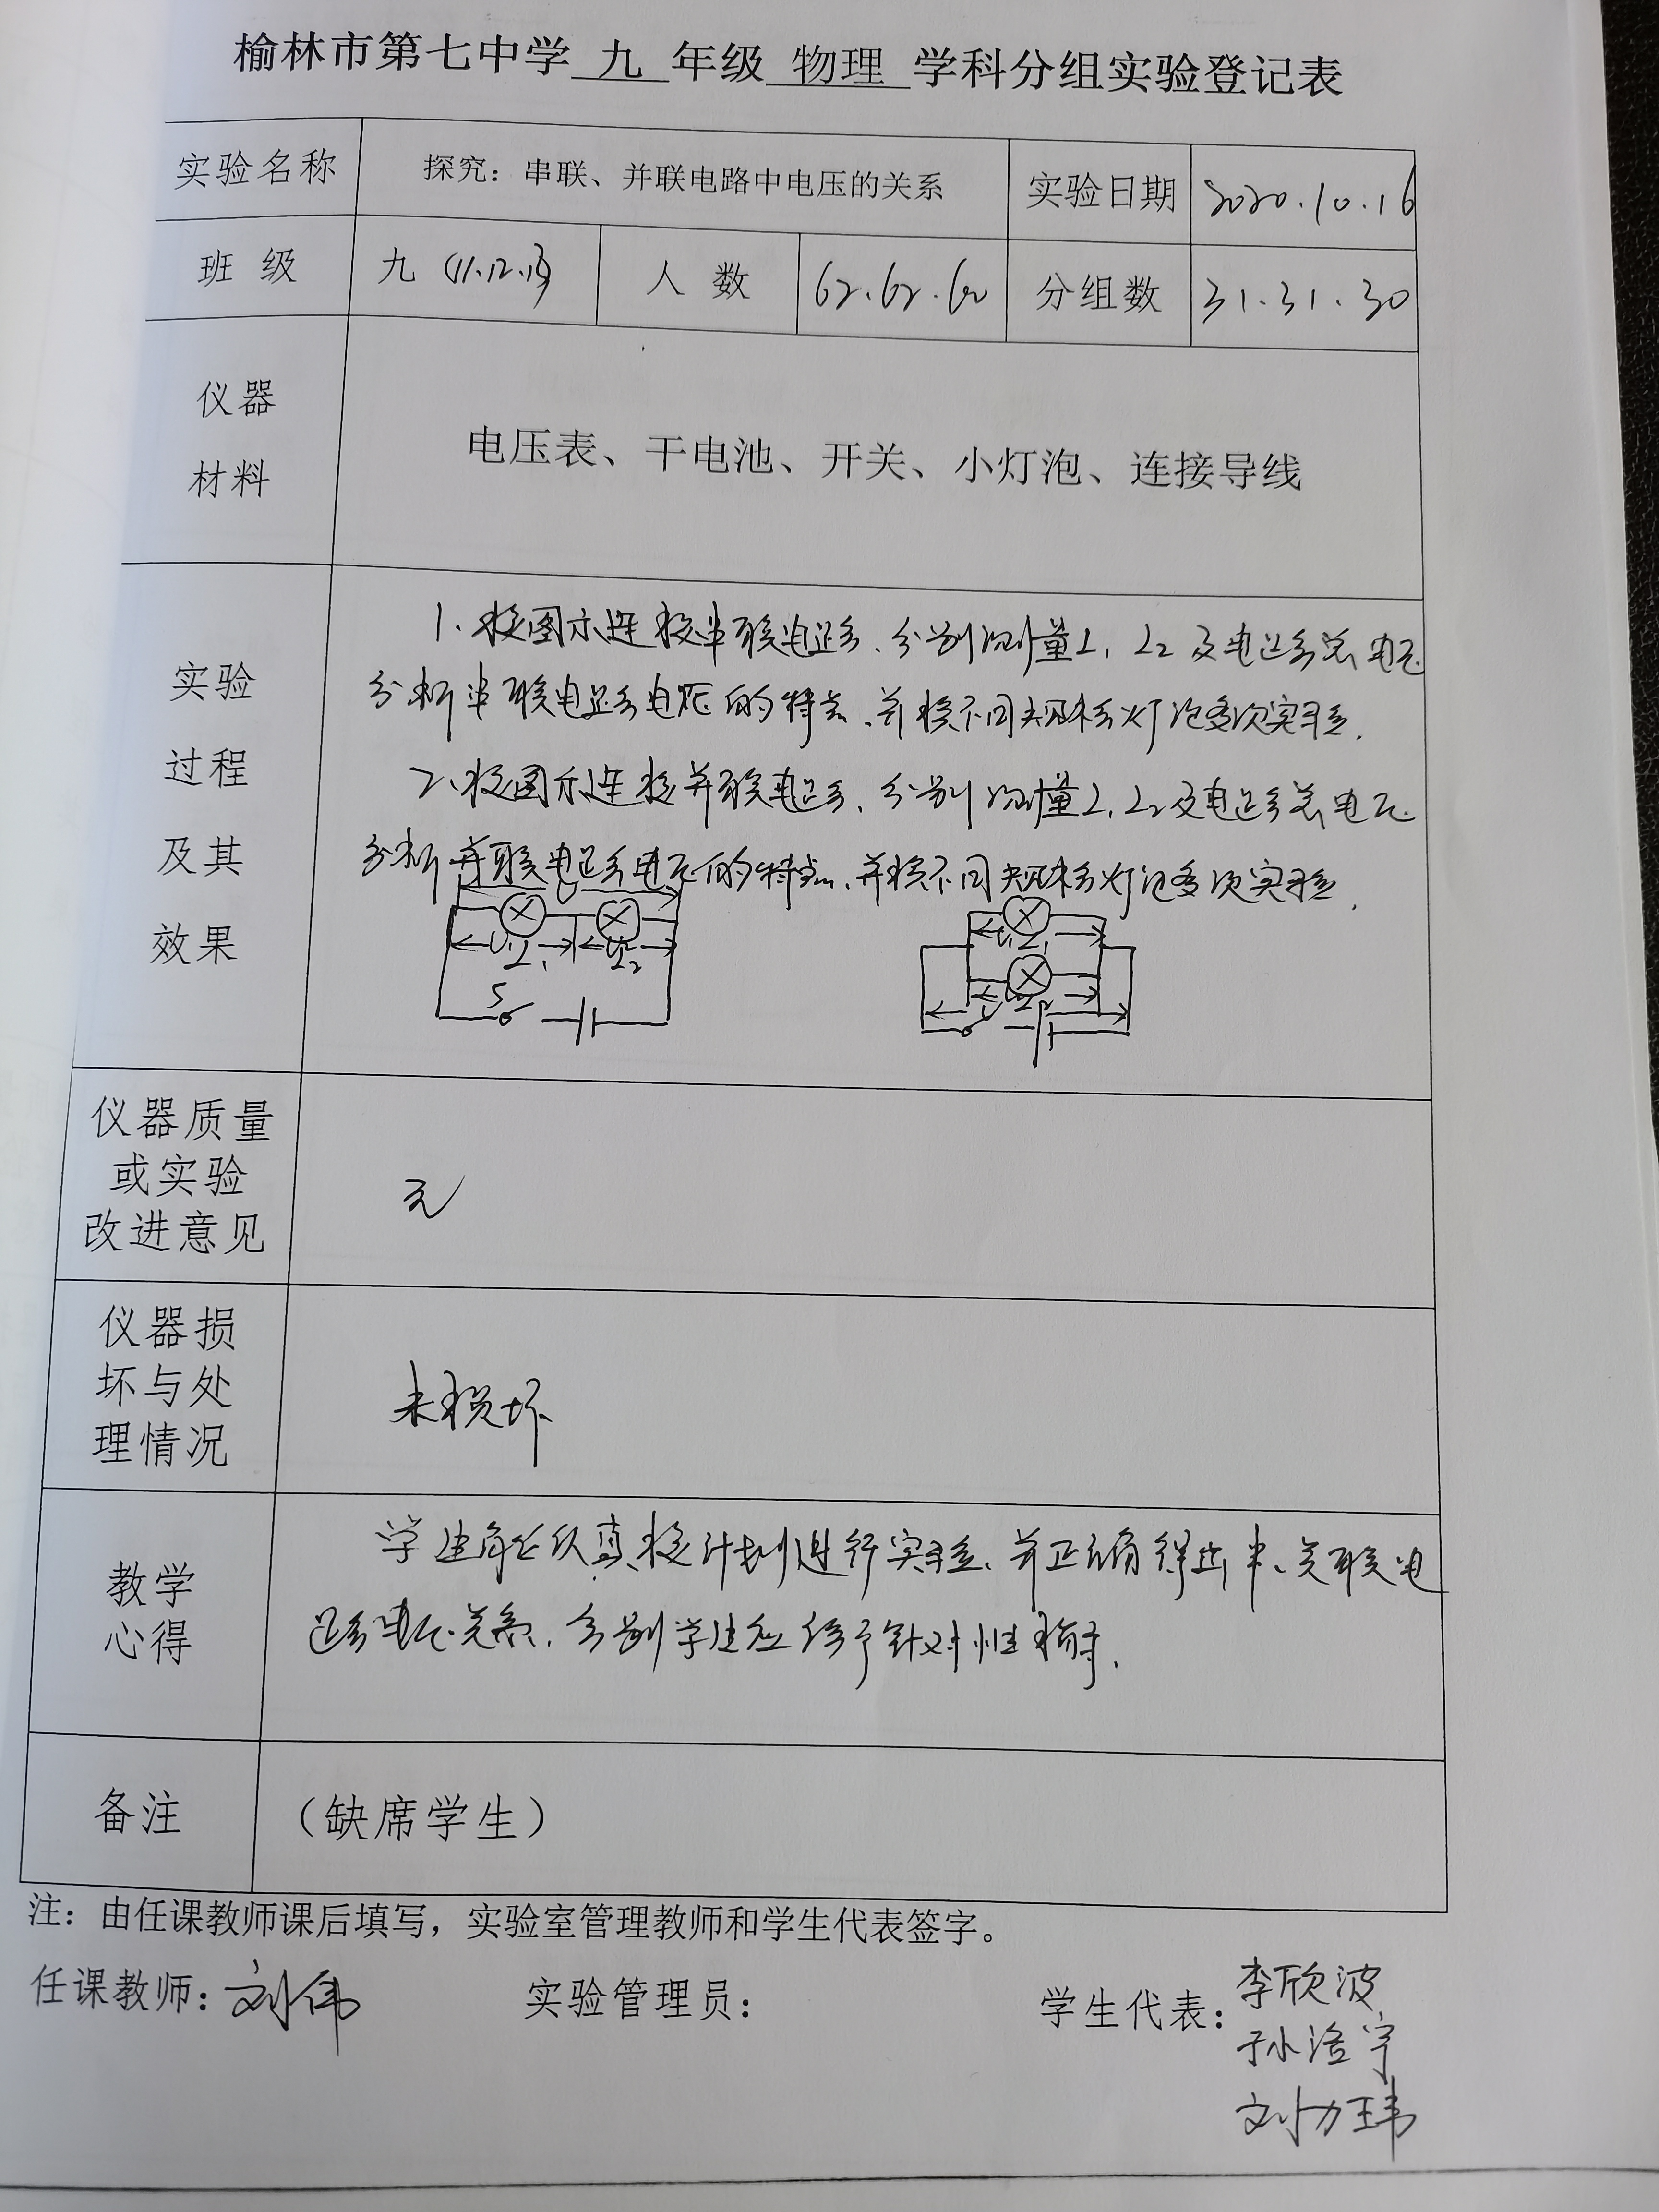 榆林市第七中学 九 年级 物理 学科分组实验登记表
实验名称 探究：串联、并联电路中电压的关系 实验日期 2020.10.16
班 级 九 (11.12.13) 人 数 62.62.60 分组数 31.31.30
仪器
材料
电压表、干电池、开关、小灯泡、连接导线
实验
过程
及其
效果
1、按图示连接串联电路、分别测量L1 L2及电路总电压
分析串联电路电压的特点、并换不同规格灯泡多次实验.
2、按图示连接并联电路、分别测量L1.L2及电路总电压
分析并联电路电压的特点、并换不同规格灯泡多次实验.
U
U1 U2
L1 L2
S
U1 L1
U L2
仪器质量
或实验
改进意见
无
仪器损
坏与处
理情况
未损坏
教学
心得
学生能认真按计划进行实验、并正确得出串、并联电
路电压关系.个别学生应给予针对性指导.
备注 （缺席学生）
注：由任课教师课后填写，实验室管理教师和学生代表签字。
任课教师：刘伟 实验管理员： 学生代表：李欣波
孙洛宇
刘力玮